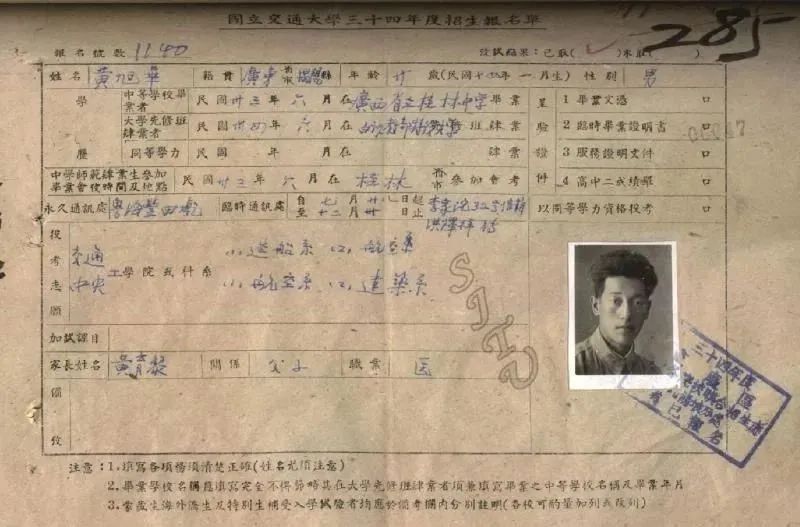 國立交通大學三十四年度招生報名單
285
報名號數 1140 考試結果:已取( )未取( )
姓名 黃旭華 籍貫 廣東省市揭陽縣 年齡 廿 歲(民國十五年一月生) 性別 男
學歷
中等學校畢業者 民國卅三年六月在廣西省立桂林中學畢業
大學先修班肄業者 民國卅四年六月在 班肄業
同等學力 民國 年 月在 肄業
呈驗證件
1 畢業文憑 口
2 臨時畢業證明書 口
3 服務證明文件 口
4 高中二成績單 口
中學師範肄業生參加畢業會考後時間及地點 民國卅三年六月在桂林省市參加會考
永久通訊處 粵海豐田墘 臨時通訊處 自七月廿八日起至十二月卅日止
以同等學力資格投考 口
投考志願
交通 工學院或科系 (1)造船系 (2)航空系
中央 (1)航空系 (2)建築系
SJTU
加試課目
家長姓名 黃育黎 關係 父子 職業 醫
備攷
三十四年度
區
招生處
已報名
注意:1.填寫各項務須清楚正確(姓名尤須注意)
2.畢業學校名稱應填寫完全不得節略其在大學先修班肄業者須兼填寫畢業之中等學校名稱及畢業年月
3.蒙藏生海外僑生及特別生補受入學試驗者均應於備考欄內分別註明(各校可酌量加列或改列)